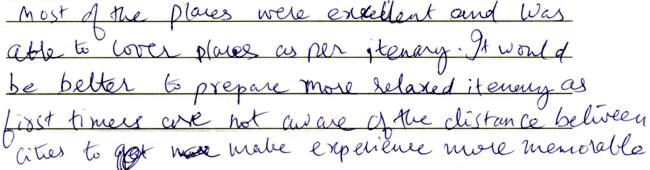 most of the places were excellent and was
able to cover places as per itenary. It would
be better to prepare more relaxed itenary as
first timers are not aware of the distance between
cities to make experience more memorable